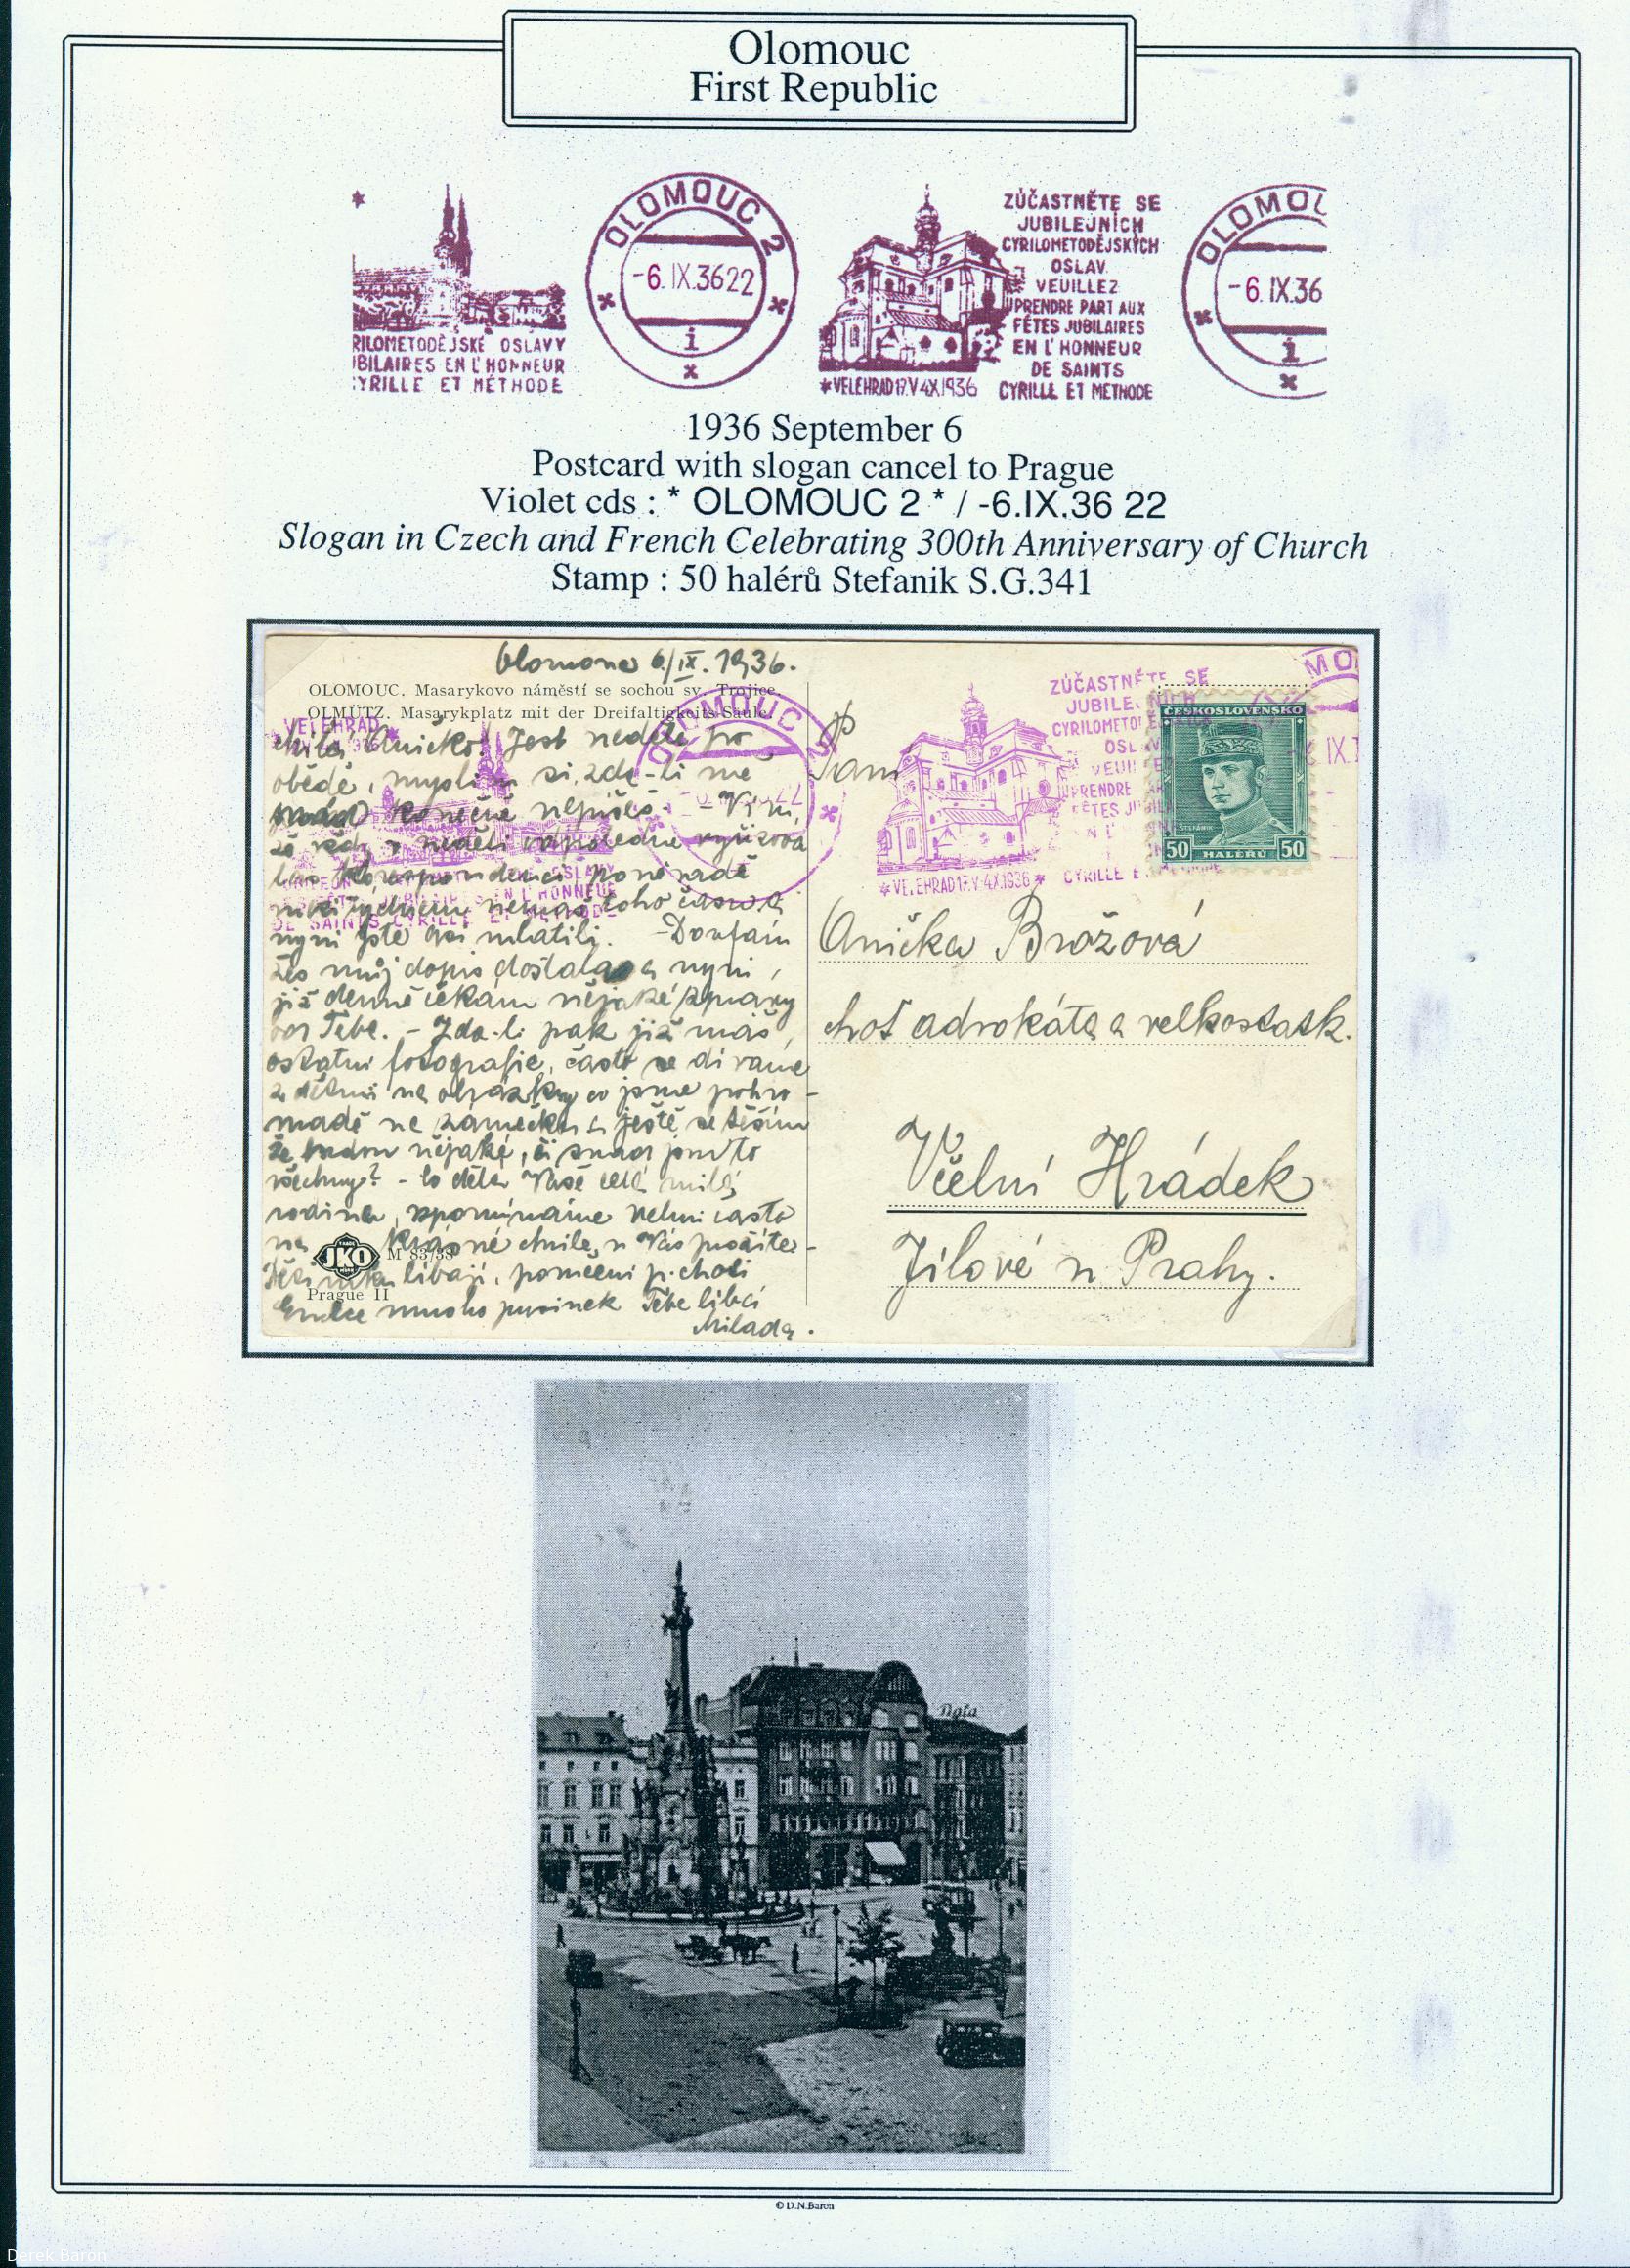 Olomouc
First Republic
RILOMETODĚJSKÉ OSLAVY
IBILAIRES EN L'HONNEUR
YRILLE ET MÉTHODE
OLOMOUC 2
-6.IX.3622
1
ZÚČASTNĚTE SE
JUBILEJNÍCH
CYRILOMETODĚJSKÝCH
OSLAV
VEUILLEZ
PRENDRE PART AUX
FÊTES JUBILAIRES
EN L'HONNEUR
DE SAINTS
CYRILLE ET METHODE
*VELEHRAD 17.V 4X.1936
OLOMOU
-6.IX.36
1
1936 September 6
Postcard with slogan cancel to Prague
Violet cds : * OLOMOUC 2 * / -6.IX.36 22
Slogan in Czech and French Celebrating 300th Anniversary of Church
Stamp : 50 halérů Stefanik S.G.341
Olomouc 6/IX. 1936.
OLOMOUC. Masarykovo náměstí se sochou sv. Trojice.
OLMÜTZ. Masarykplatz mit der Dreifaltigkeits-Säule.
VELEHRAD
Milá Aničko! Jest neděle po
obědě, myslím si, zda-li mě
konečně nepíšeš. - Vím,
že vždy v neděli odpoledne
korespondenci
nemáš toho času a
nyní jste asi mlátili. - Doufám
žes můj dopis dostala a nyní,
již denně čekám nějaké zprávy
od Tebe. - Zda-li pak již máš
ostatní fotografie, často se díváme
s dětmi na obrázky co jsme pohro-
madě na zámečku a ještě se těším
že budou nějaké, či snad jsou to
všechny? - Co dělá Vaše celá milá
rodina, vzpomínáme velmi často
na krásné chvíle u Vás prožité.-
líbají, p. choti
mnoho pusinek Tebe líbá
Milada.
JKO
M 83738
Prague II
OLOMOUC 2
EN L'HONNEUR
DE SAINTS CYRILLE ET METHODE
ZÚČASTNĚTE SE
*VELEHRAD 17.V 4X.1936*
ČESKOSLOVENSKO
ŠTEFÁNIK
50 HALÉRŮ 50
P
Paní
Anička Brožová
choť advokáta a velkostatk.
Včelní Hrádek
Jílové u Prahy.
Baťa
© D.N.Baron
Derek Baron